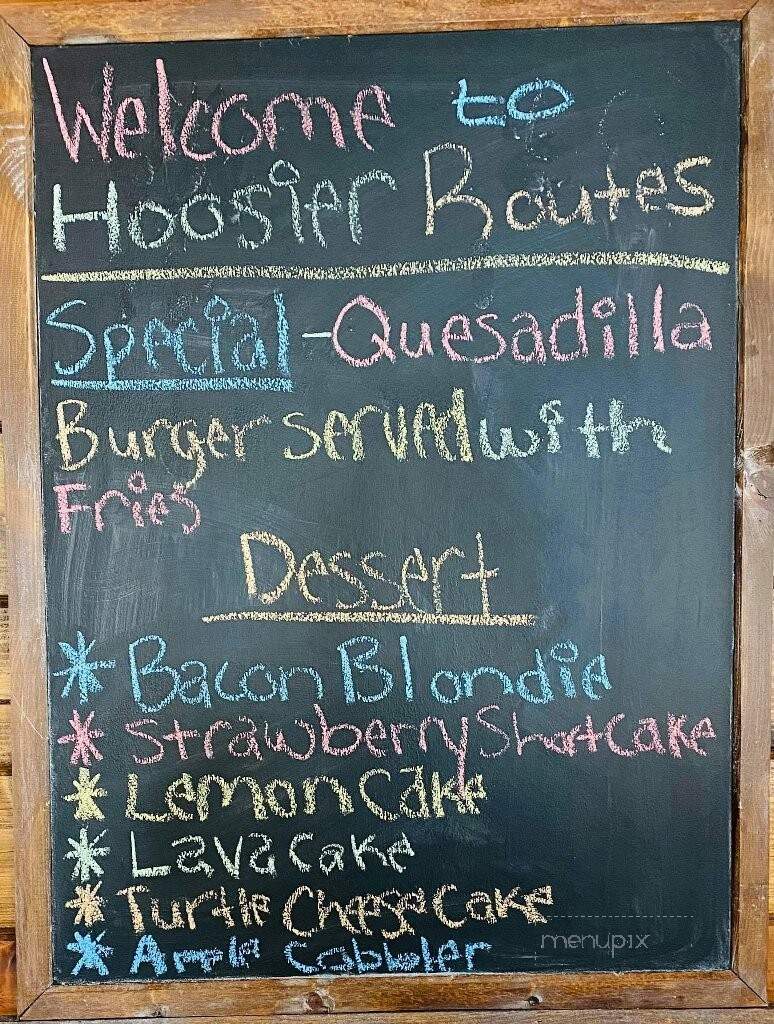 Welcome to
Hoosier Routes
Special - Quesadilla
Burger served with
Fries
Dessert
* Bacon Blondie
* Strawberry Shortcake
* Lemon Cake
* Lava Cake
* Turtle Cheese Cake
* Apple Cobbler
menupix